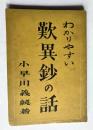 わかりやすい
歎異鈔の話
小早川義融著